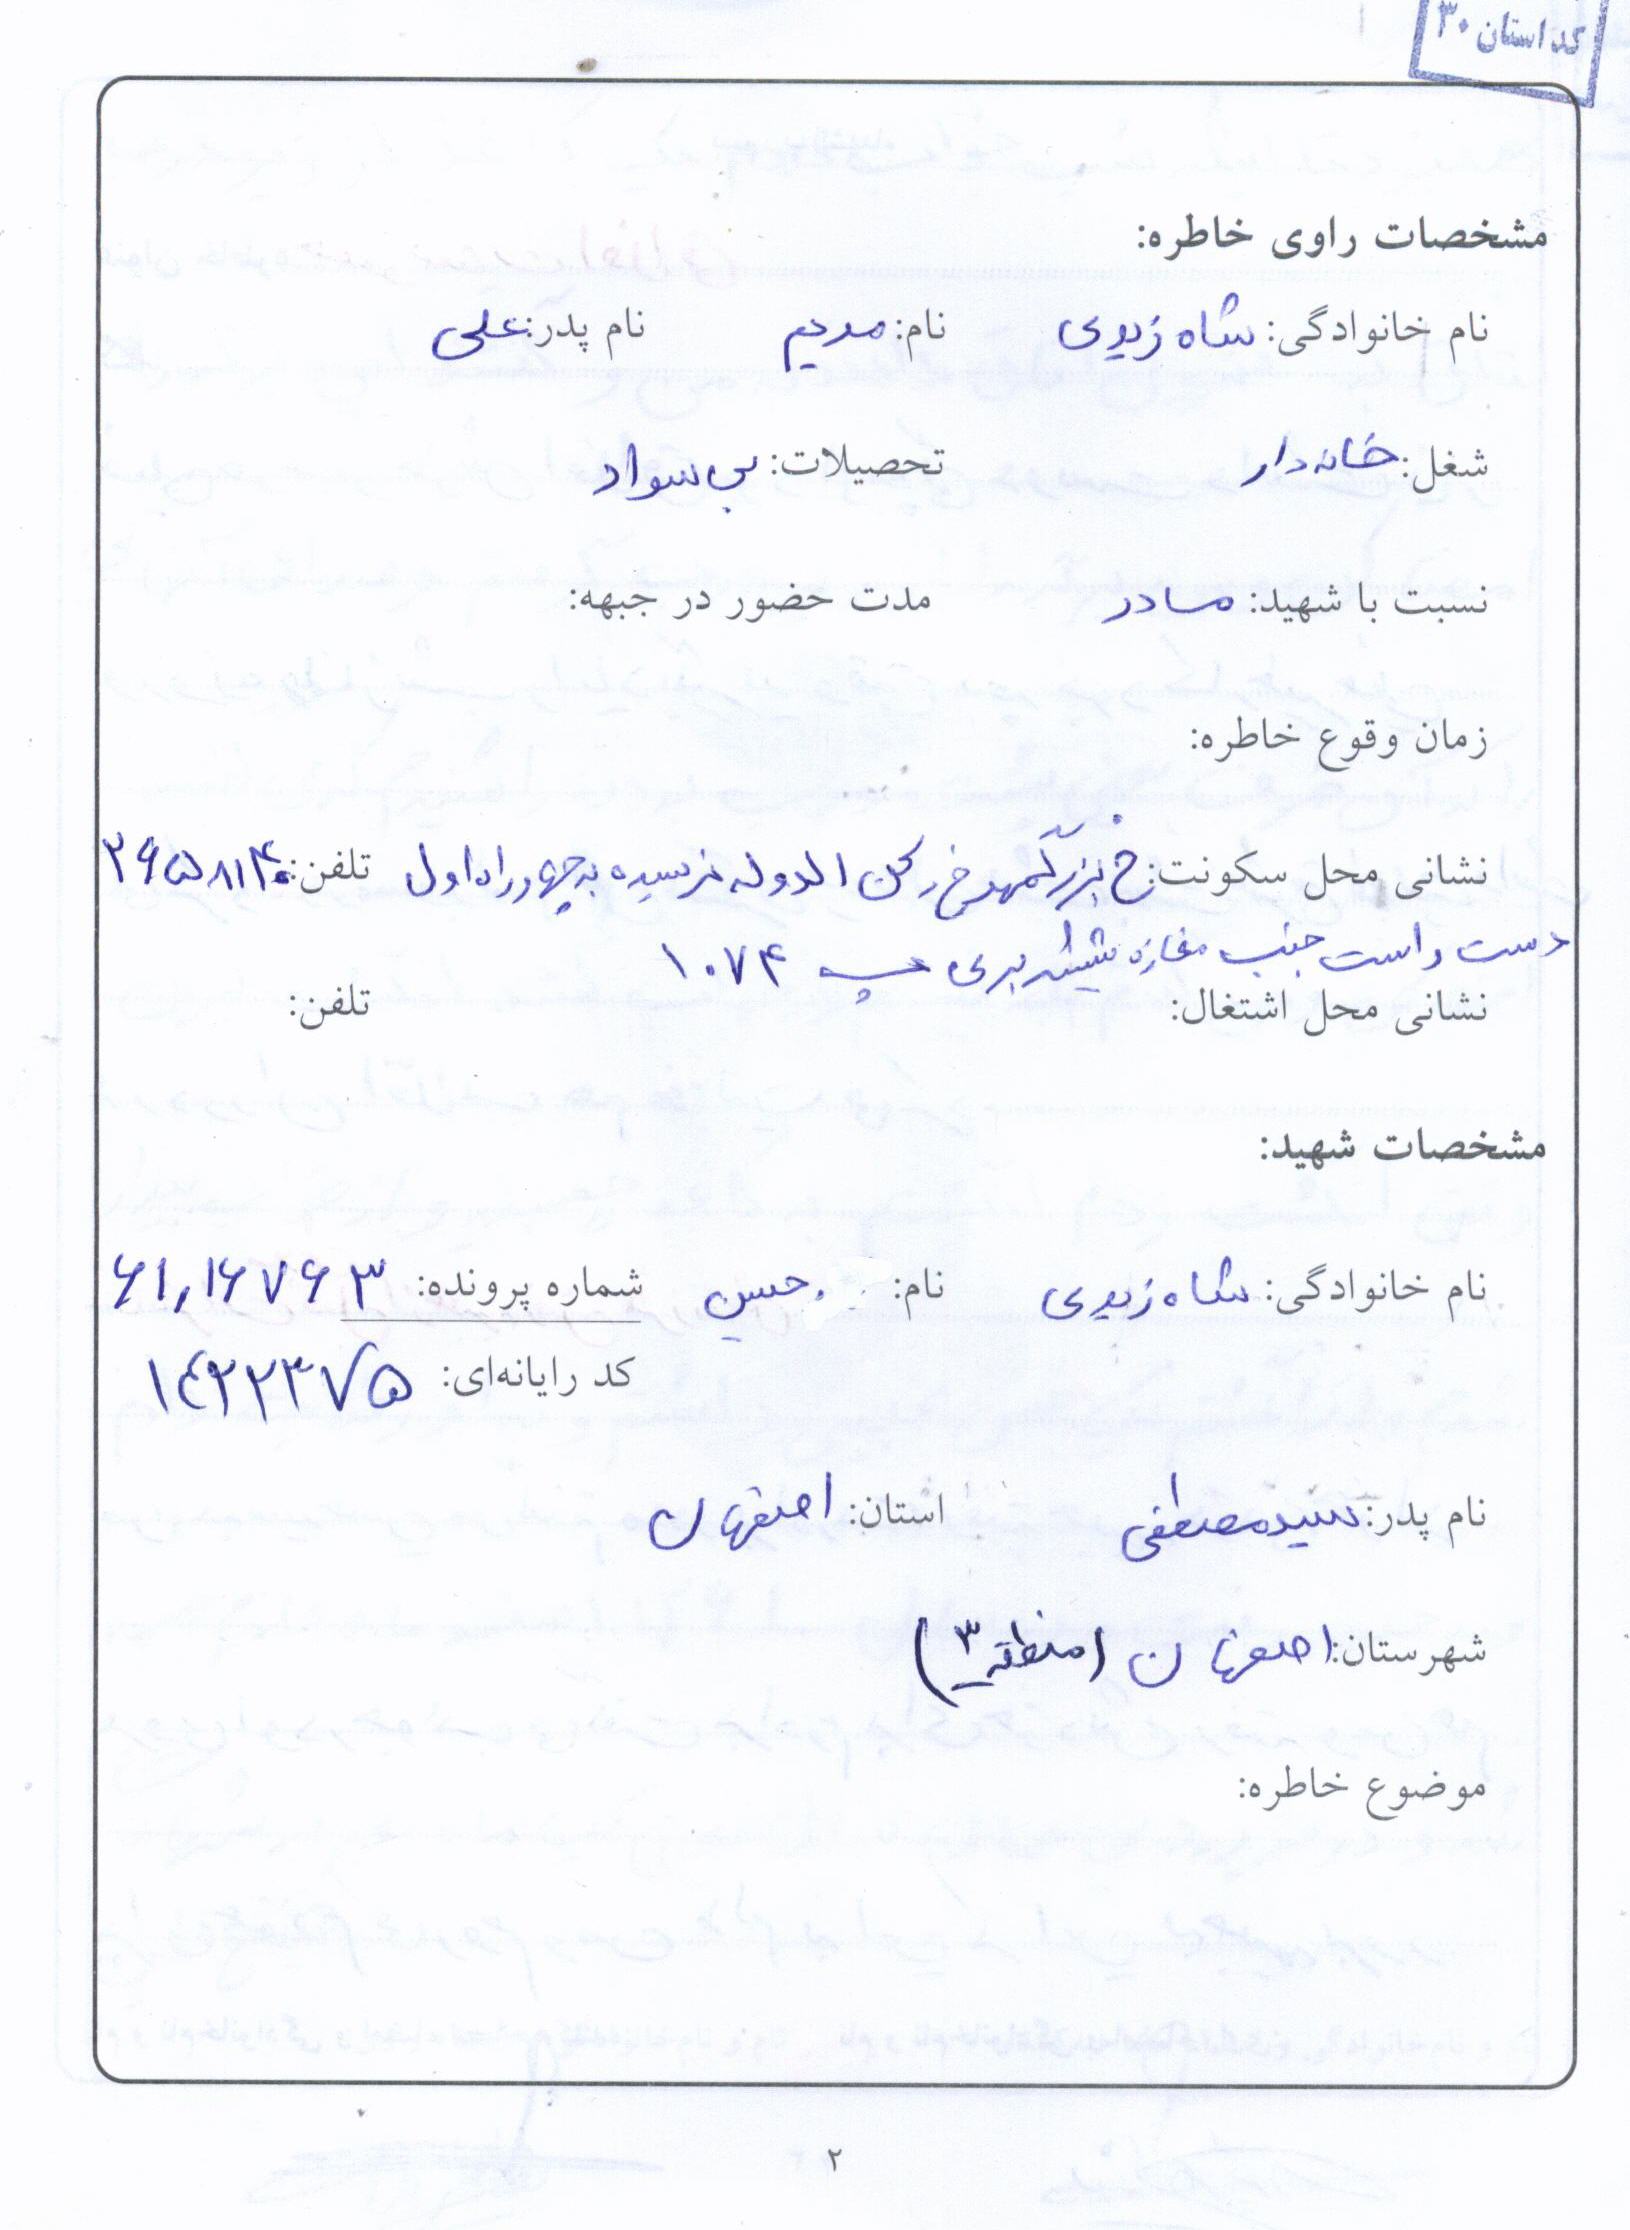 کد استان ۳۰
مشخصات راوی خاطره:
نام خانوادگی: شاه زیدی نام: مریم نام پدر: علی
شغل: خانه دار تحصیلات: بی سواد
نسبت با شهید: مادر مدت حضور در جبهه:
زمان وقوع خاطره:
نشانی محل سکونت: خ بزرگمهر خ رکن الدوله نرسیده به چهار راه اول تلفن:
دست راست جنب مغازه شیشه بری پ ۱۰۷۴
نشانی محل اشتغال: تلفن:
مشخصات شهید:
نام خانوادگی: شاه زیدی نام: حسین شماره پرونده: ۶۱,۱۶۷۶۳
کد رایانه‌ای: ۱۴۲۲۳۷۵
نام پدر: سید مصطفی استان: اصفهان
شهرستان: اصفهان (منطقه ۳)
موضوع خاطره:
۲